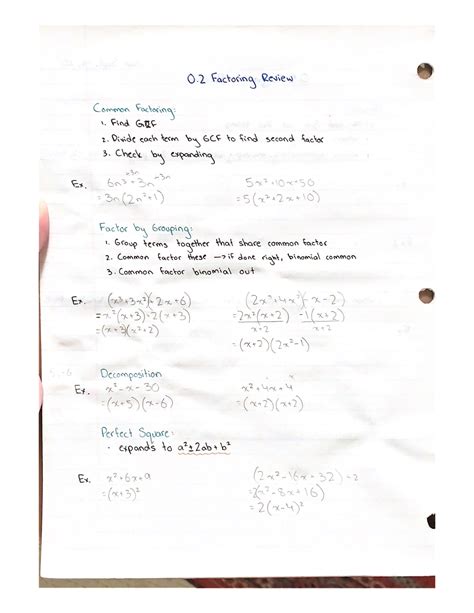 0.2 Factoring Review
Common Factoring:
1. Find GCF
2. Divide each term by GCF to find second factor
3. Check by expanding
÷3n ÷3n
Ex. 6n³+3n 5x²+10x+50
=3n(2n²+1) =5(x²+2x+10)
Factor by Grouping:
1. Group terms together that share common factor
2. Common factor these → if done right, binomial common
3. Common factor binomial out
Ex. (x³+3x²)+(2x+6) (2x³+4x²)(-x-2)
=x²(x+3)+2(x+3) =2x²(x+2) -1(x+2)
=(x+3)(x²+2) x+2 x+2
=(x+2)(2x²-1)
Decomposition
Ex. x²-x-30 x²+4x+4
=(x+5)(x-6) =(x+2)(x+2)
Perfect Square:
• expands to a²±2ab+b²
Ex. x²+6x+9 (2x²-16x+32)÷2
=(x+3)² =2(x²-8x+16)
=2(x-4)²